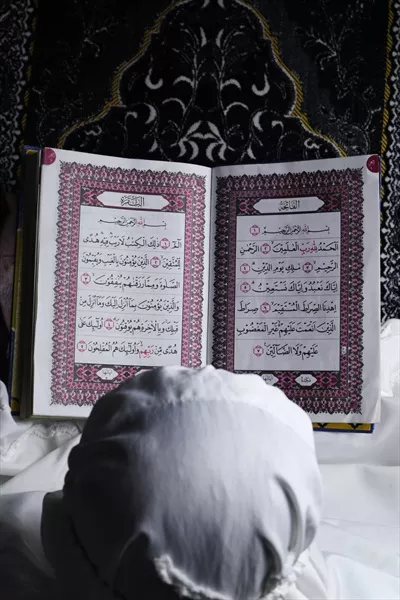 الفاتحة
بِسْمِ اللَّهِ الرَّحْمَٰنِ الرَّحِيمِ ١
الْحَمْدُ لِلَّهِ رَبِّ الْعَالَمِينَ ٢ الرَّحْمَٰنِ
الرَّحِيمِ ٣ مَالِكِ يَوْمِ الدِّينِ ٤
إِيَّاكَ نَعْبُدُ وَإِيَّاكَ نَسْتَعِينُ ٥
اهْدِنَا الصِّرَاطَ الْمُسْتَقِيمَ ٦ صِرَاطَ
الَّذِينَ أَنْعَمْتَ عَلَيْهِمْ غَيْرِ الْمَغْضُوبِ
عَلَيْهِمْ وَلَا الضَّالِّينَ ٧
البقرة
بِسْمِ اللَّهِ الرَّحْمَٰنِ الرَّحِيمِ
الٓمٓ ١ ذَٰلِكَ الْكِتَابُ لَا رَيْبَ فِيهِ هُدًى
لِلْمُتَّقِينَ ٢ الَّذِينَ يُؤْمِنُونَ بِالْغَيْبِ وَيُقِيمُونَ
الصَّلَوٰةَ وَمِمَّا رَزَقْنَاهُمْ يُنْفِقُونَ ٣
وَالَّذِينَ يُؤْمِنُونَ بِمَا أُنْزِلَ إِلَيْكَ وَمَا أُنْزِلَ مِنْ
قَبْلِكَ وَبِالْآخِرَةِ هُمْ يُوقِنُونَ ٤ أُولَٰئِكَ عَلَىٰ
هُدًى مِنْ رَبِّهِمْ وَأُولَٰئِكَ هُمُ الْمُفْلِحُونَ ٥